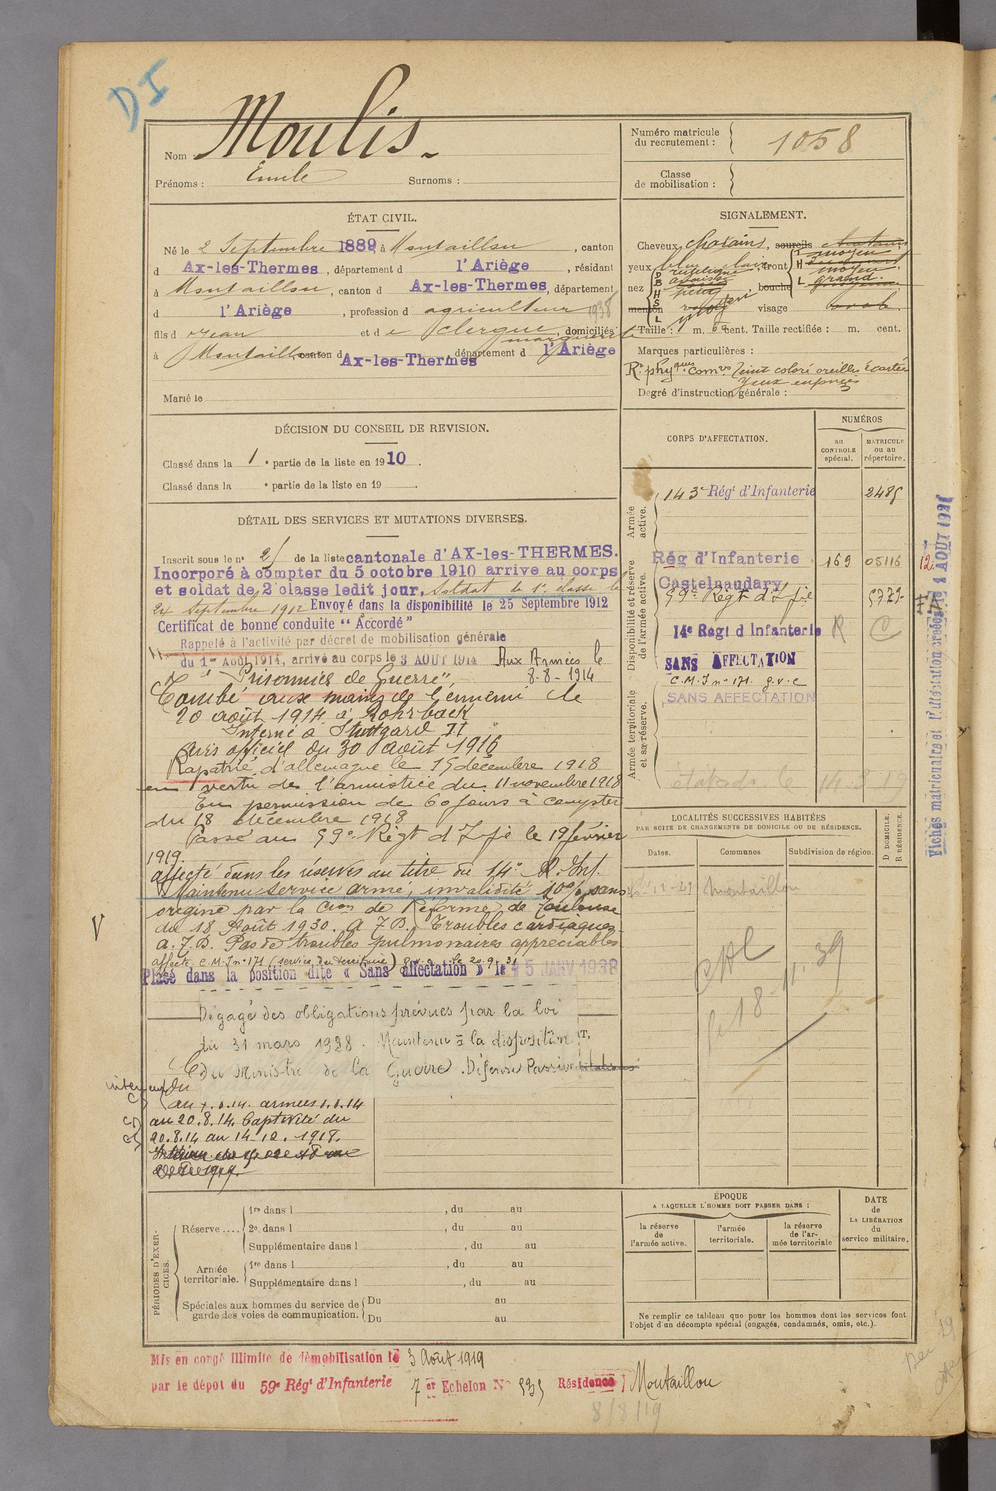 DI
Nom Moulis
Prénoms : Emile Surnoms :
Numéro matricule du recrutement : 1058
Classe de mobilisation :
ÉTAT CIVIL.
Né le 2 Septembre 1889, à Montaillou, canton
d Ax-les-Thermes, département d l'Ariège, résidant
à Montaillou, canton d Ax-les-Thermes, département
d l'Ariège, profession d agriculteur
fils d Jean et d e Clergue Marguerite domiciliés
à Montaillou canton d Ax-les-Thermes, département d l'Ariège
Marié le
SIGNALEMENT.
Cheveux chatains, sourcils
yeux front
nez bouche
menton visage ovale
Taille : 1 m. cent. Taille rectifiée : m. cent.
Marques particulières :
Rts phyques comres Teint coloré oreilles écartées
yeux enfoncés
Degré d'instruction générale :
DÉCISION DU CONSEIL DE REVISION.
Classé dans la 1e partie de la liste en 1910.
Classé dans la e partie de la liste en 19 .
DÉTAIL DES SERVICES ET MUTATIONS DIVERSES.
Inscrit sous le n° 25 de la liste cantonale d'AX-les-THERMES.
Incorporé à compter du 5 octobre 1910 arrive au corps
et soldat de 2e classe ledit jour. Soldat de 1e classe le
24 Septembre 1912 Envoyé dans la disponibilité le 25 Septembre 1912
Certificat de bonne conduite "Accordé"
Rappelé à l'activité par décret de mobilisation générale
du 1er Août 1914, arrivé au corps le 3 AOUT 1914 Aux Armées le
8-8-1914
"Prisonnier de Guerre"
Tombé aux mains de l'ennemi le
20 août 1914 à Rohrback
Interné à Stuttgard II
Avis officiel du 30 août 1916
Rapatrié d'allemagne le 15 décembre 1918
en vertu de l'armistice du 11 novembre 1918
En permission de 60 jours à compter
du 18 décembre 1918
Passé au 59e Régt d'Ifie le 19 février
1919.
affecté dans les réserves au titre du 14e R. Inf.
Maintenu service armé, invalidité 10% sans
origine par la Cion de Réforme de Toulouse
du 18 Août 1930. A.T.D. Troubles cardiaques
A.T.D. Pas de troubles pulmonaires appréciables
affecté C.M.I n° 171 (service du territoire) g.v.c. le 20.9.31
Placé dans la position dite « Sans affectation » le 15 JANV. 1938
Dégagé des obligations prévues par la loi
du 31 mars 1928. Maintenu à la disposition
du Ministre de la Guerre. Défense Passive
intérieur du
au 7.8.14. armées 8.8.14
au 20.8.14. Captivité du
20.8.14 au 14.12.1918.
V
CORPS D'AFFECTATION.
NUMÉROS
au CONTROLE spécial.
MATRICULE ou au répertoire.
Armée active.
143e Régt d'Infanterie 2485
Disponibilité et réserve de l'armée active.
Rég d'Infanterie 169 05116
Castelnaudary
59e Régt d'Ifie
14e Regt d Infanterie R C
SANS AFFECTATION
C.M.I n° 171. g.v.c
SANS AFFECTATION
Armée territoriale et sa réserve.
LOCALITÉS SUCCESSIVES HABITÉES
PAR SUITE DE CHANGEMENTS DE DOMICILE OU DE RÉSIDENCE.
D. DOMICILE.
R. RÉSIDENCE.
Dates. Communes Subdivision de région.
Montaillou
le 18-11-39
PÉRIODES D'EXERCICES.
Réserve .... 1re dans l , du au
2e. dans l , du au
Supplémentaire dans l , du au
Armée territoriale. 1re dans l , du au
Supplémentaire dans l , du au
Spéciales aux hommes du service de garde des voies de communication. Du au
Du au
ÉPOQUE
A LAQUELLE L'HOMME DOIT PASSER DANS :
la réserve de l'armée active.
l'armée territoriale.
la réserve de l'armée territoriale
DATE de LA LIBÉRATION du service militaire.
Ne remplir ce tableau que pour les hommes dont les services font
l'objet d'un décompte spécial (engagés, condamnés, omis, etc.).
Mis en congé illimité de démobilisation le 3 Août 1919
par le dépot du 59e Rég. d'Infanterie 7er Echelon N° 535 Résidence Montaillou
8/8/19